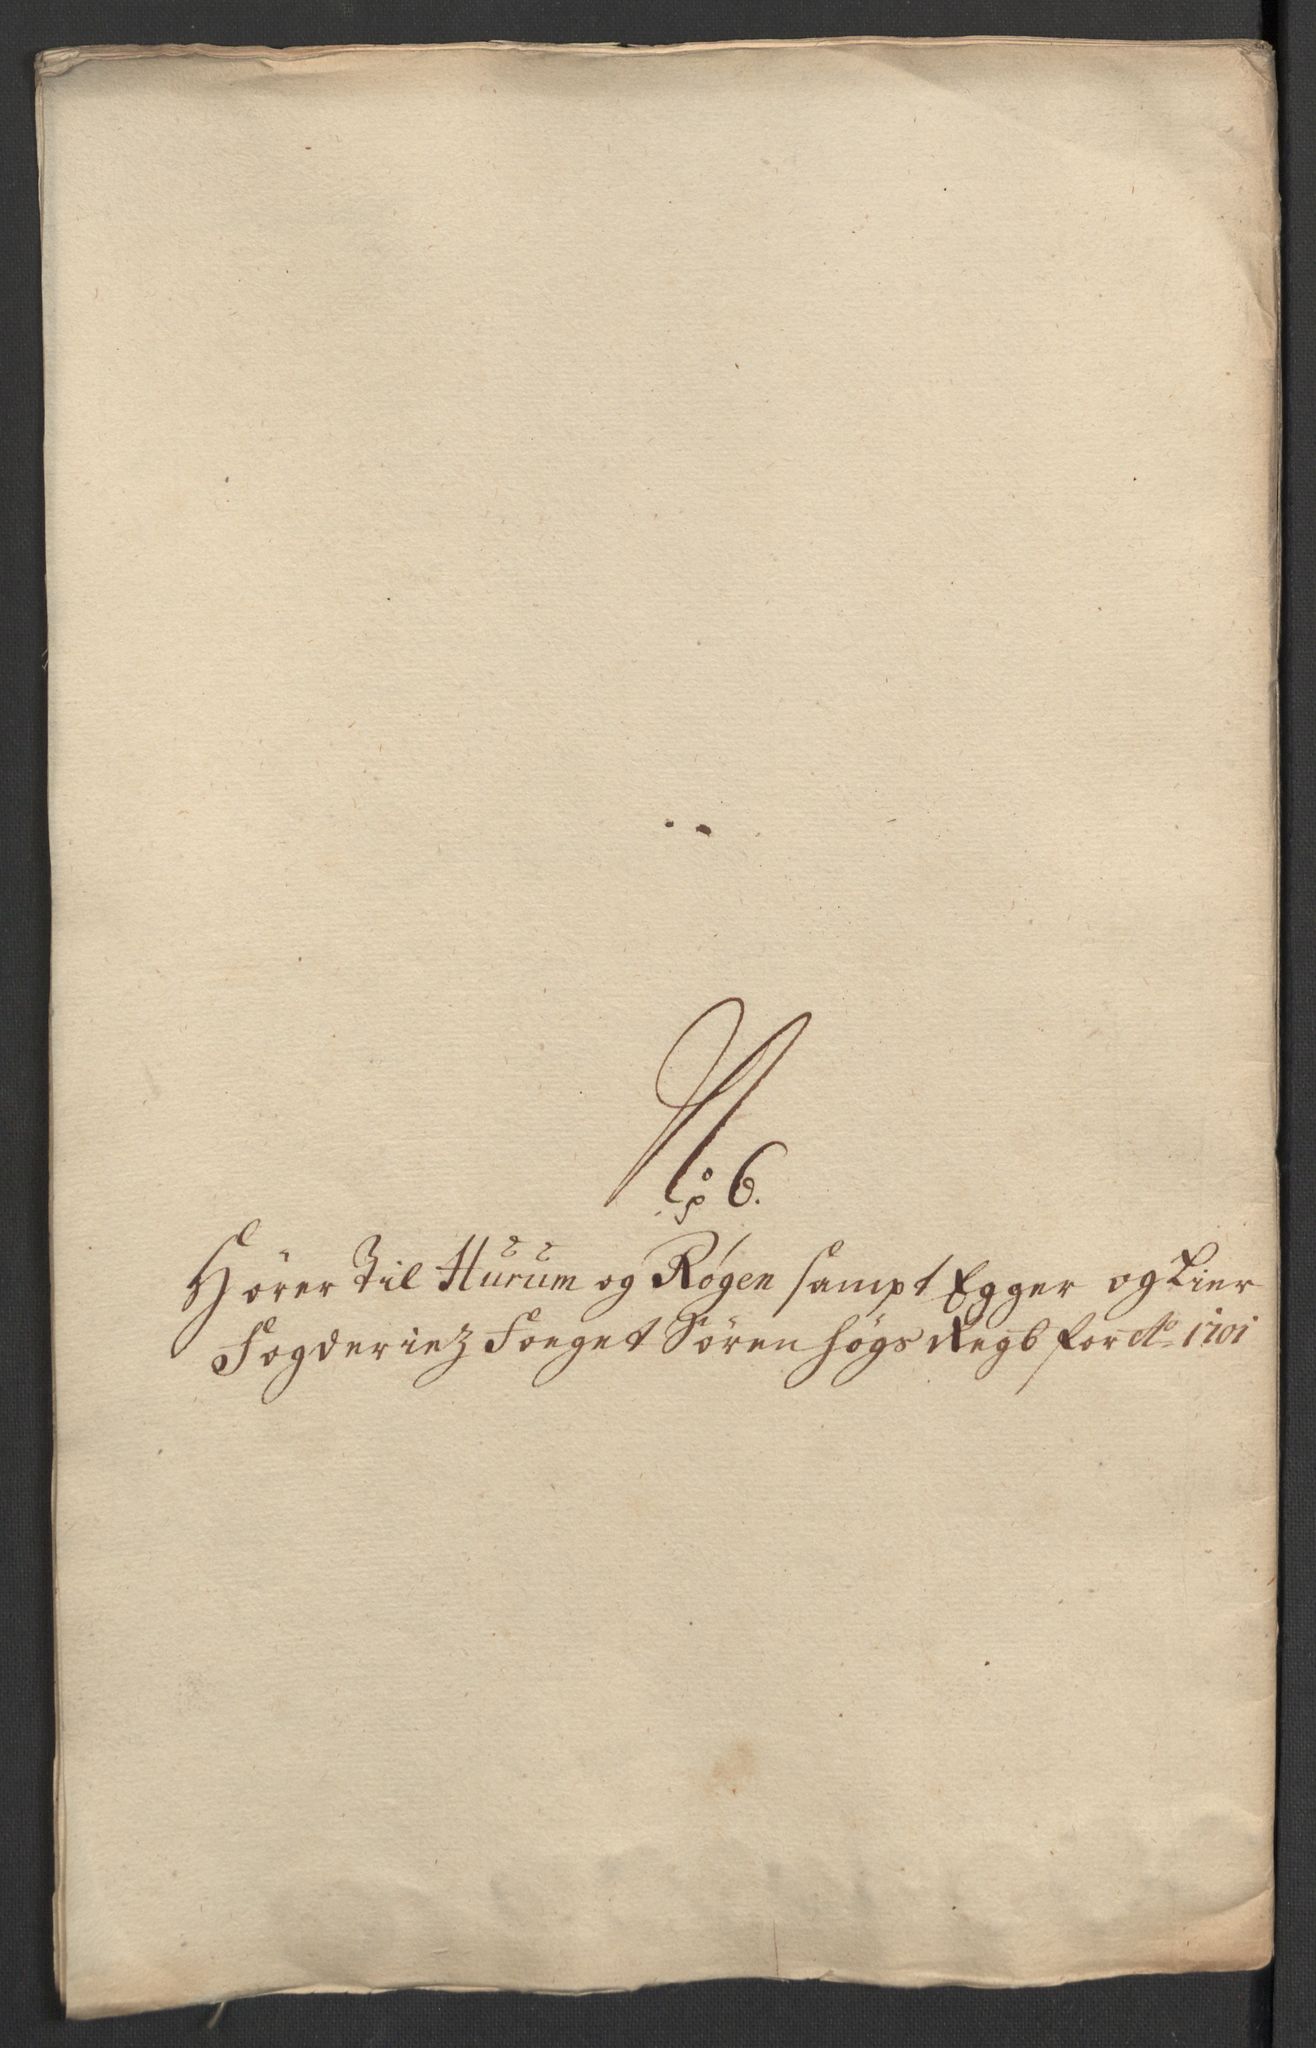 No: 6.
Hörer Til Hurum og Røgen sampt Egger og Lier
Fogderiez Foeget Sören Høgs Regb for Ao 1701